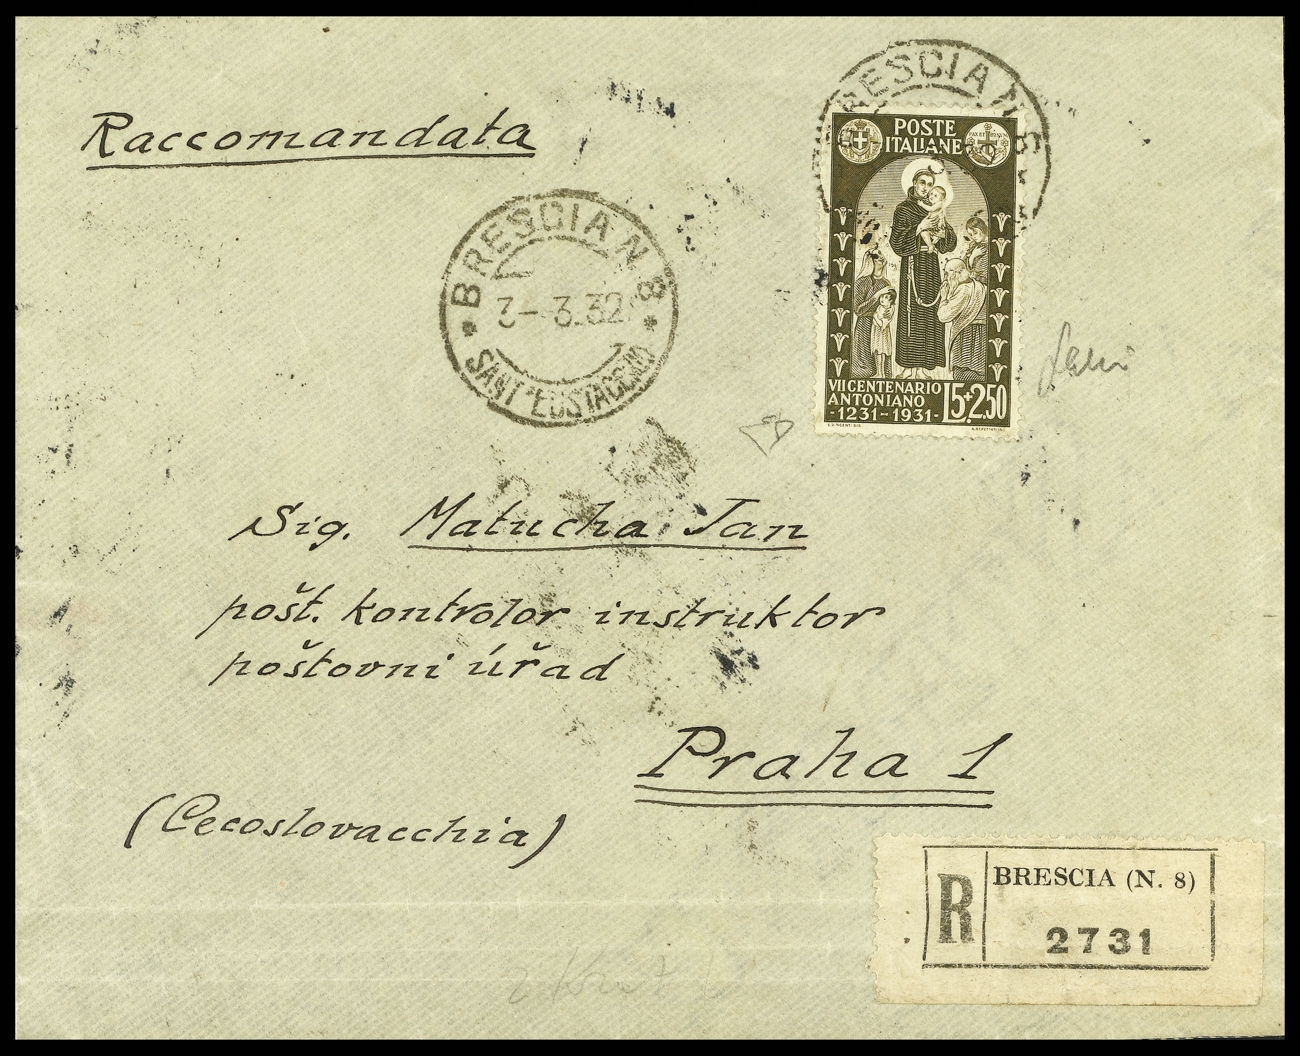 Raccomandata
BRESCIA N. 8
3-3.32
SANT'EUSTACCHIO
BRESCIA N. 8
POSTE
ITALIANE
VII CENTENARIO
ANTONIANO
-1231-1931-
L5+2.50
Sig. Matucha Jan
pošt. kontrolor instruktor
poštovni úřad
Praha 1
(Cecoslovacchia)
R
BRESCIA (N. 8)
2731